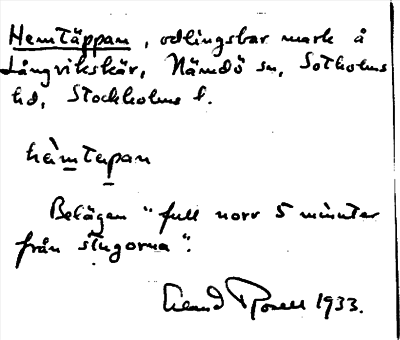 Hemtäppan, odlingsbar mark å
Långvikskär, Nämdö sn, Sotholms
hd, Stockholms l.
hèmtæpan
Belägen "full norr 5 minuter
från stugorna".
Erland Rosell 1933.